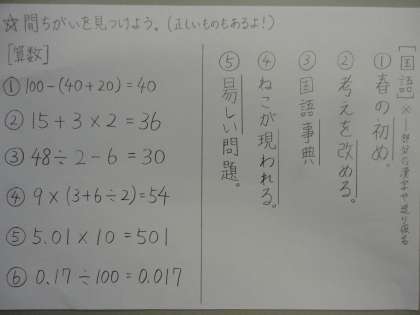 ☆間ちがいを見つけよう。(正しいものもあるよ!)
[算数]
① 100-(40+20)=40
② 15+3×2=36
③ 48÷2-6=30
④ 9×(3+6÷2)=54
⑤ 5.01×10=501
⑥ 0.17÷100=0.017
[国語]※―部分の漢字や送り仮名
① 春の初め。
② 考えを改める。
③ 国語事典
④ ねこが現われる。
⑤ 易しい問題。